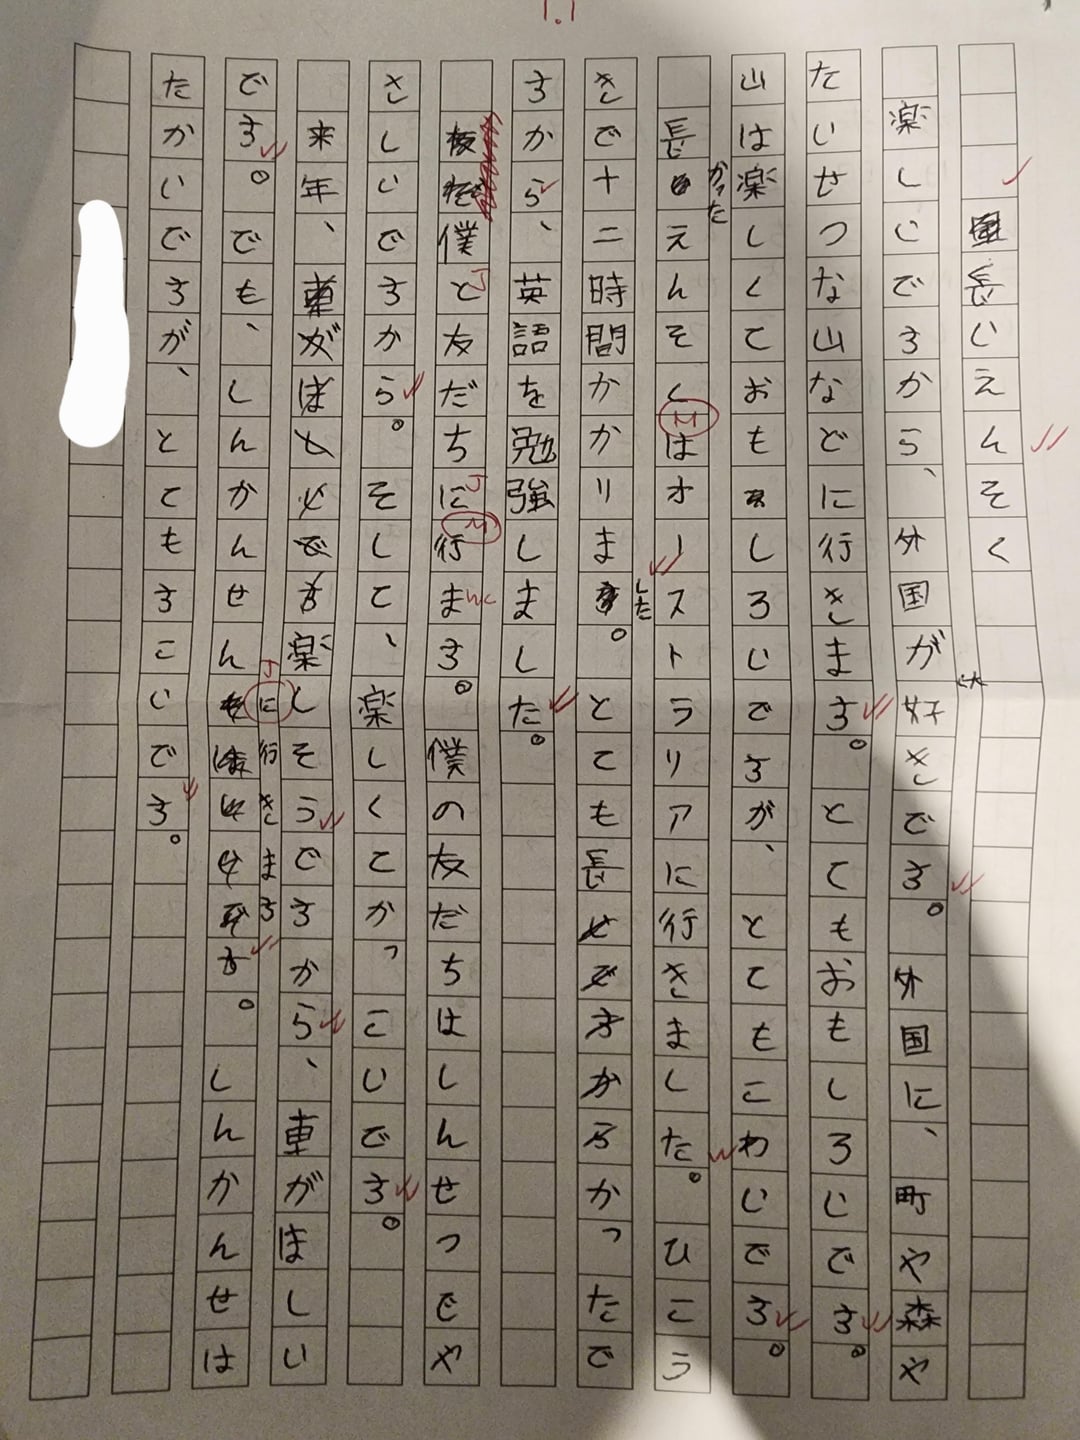 1.1
長いえんそく
楽しいですから、外国が好きです。外国に、町や森や
たいせつな山などに行きます。とてもおもしろいです。
山は楽しくておもしろいですが、とてもこわいです。
長かったえんそくはオーストラリアに行きました。ひこう
きで十二時間かかりました。とても長かったで
すから、英語を勉強しました。
僕と友だちに行ます。僕の友だちはしんせつでや
さしいですから。そして、楽しくてかっこいいです。
来年、車がほ楽しそうですから、車がほしい
です。でも、しんかんせんに行きます。しんかんせは
たかいですが、とてもすごいです。